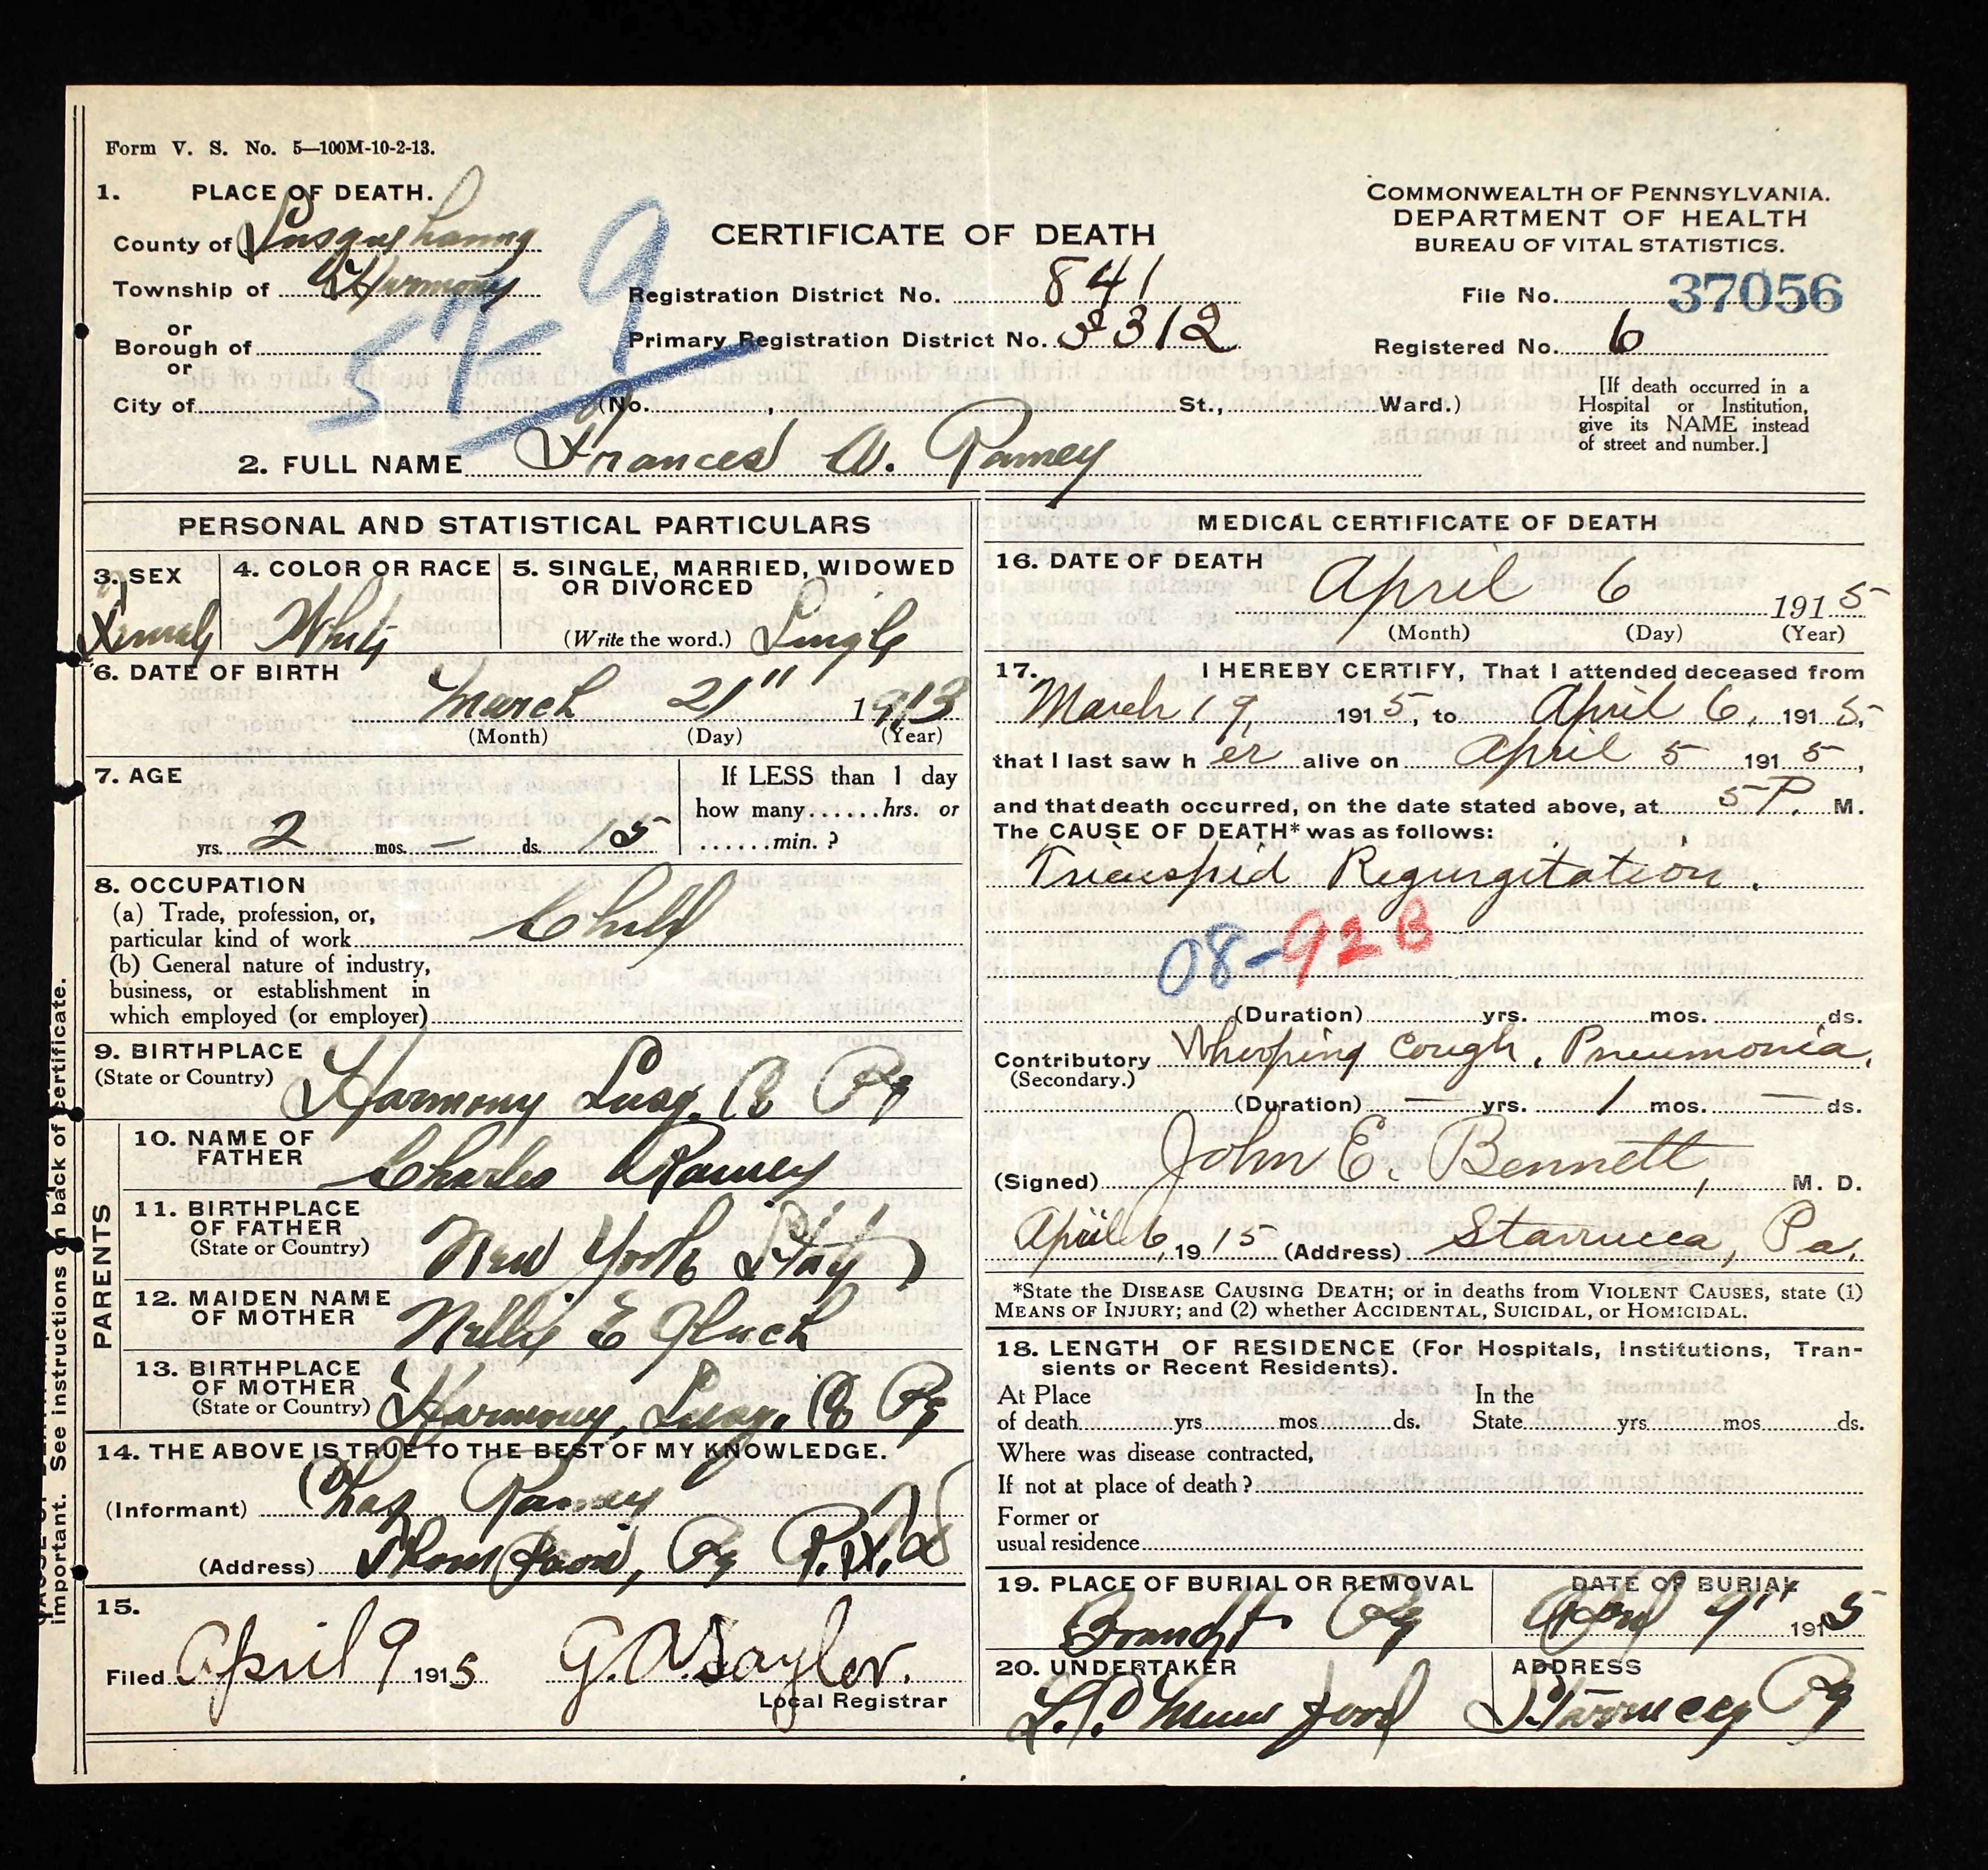 Form V. S. No. 5—100M-10-2-13.
1. PLACE OF DEATH.
County of Susquehanna
Township of Harmony
or
Borough of
or
City of
CERTIFICATE OF DEATH
Registration District No. 841
Primary Registration District No. 3312
(No. , St., Ward.)
COMMONWEALTH OF PENNSYLVANIA.
DEPARTMENT OF HEALTH
BUREAU OF VITAL STATISTICS.
File No. 37056
Registered No. 6
[If death occurred in a
Hospital or Institution,
give its NAME instead
of street and number.]
2. FULL NAME Frances A. Ramey
PERSONAL AND STATISTICAL PARTICULARS
3. SEX
Female
4. COLOR OR RACE
White
5. SINGLE, MARRIED, WIDOWED
OR DIVORCED
(Write the word.) Single
6. DATE OF BIRTH
March 21" 1913
(Month) (Day) (Year)
7. AGE
yrs. 2 mos. — ds. 15
If LESS than 1 day
how many......hrs. or
......min. ?
8. OCCUPATION
(a) Trade, profession, or,
particular kind of work Child
(b) General nature of industry,
business, or establishment in
which employed (or employer)
9. BIRTHPLACE
(State or Country) Harmony Susq. Co Pa
PARENTS
10. NAME OF
FATHER Charles Ramey
11. BIRTHPLACE
OF FATHER
(State or Country) New York State
12. MAIDEN NAME
OF MOTHER Nellie E Gluck
13. BIRTHPLACE
OF MOTHER
(State or Country) Harmony, Susq. Co Pa
14. THE ABOVE IS TRUE TO THE BEST OF MY KNOWLEDGE.
(Informant) Chas Ramey
(Address) Thompson, Pa
15.
Filed April 9 1915 G. A. Saylor.
Local Registrar
MEDICAL CERTIFICATE OF DEATH
16. DATE OF DEATH
April 6 1915
(Month) (Day) (Year)
17. I HEREBY CERTIFY, That I attended deceased from
March 19, 1915, to April 6, 1915,
that I last saw her alive on April 5 1915,
and that death occurred, on the date stated above, at 5 P. M.
The CAUSE OF DEATH* was as follows:
Tricuspid Regurgitation.
08-92 B
(Duration) yrs. mos. ds.
Contributory Whooping Cough, Pneumonia,
(Secondary.)
(Duration) — yrs. 1 mos. — ds.
(Signed) John E. Bennett, M. D.
April 6, 1915 (Address) Starrucca, Pa.
*State the DISEASE CAUSING DEATH; or in deaths from VIOLENT CAUSES, state (1)
MEANS OF INJURY; and (2) whether ACCIDENTAL, SUICIDAL, or HOMICIDAL.
18. LENGTH OF RESIDENCE (For Hospitals, Institutions, Tran-
sients or Recent Residents).
At Place In the
of death yrs mos ds. State yrs. mos ds.
Where was disease contracted,
If not at place of death?
Former or
usual residence
19. PLACE OF BURIAL OR REMOVAL
Brandt Pa
DATE OF BURIAL
April 9" 1915
20. UNDERTAKER
ADDRESS
Starrucca Pa
important. See instructions on back of certificate.